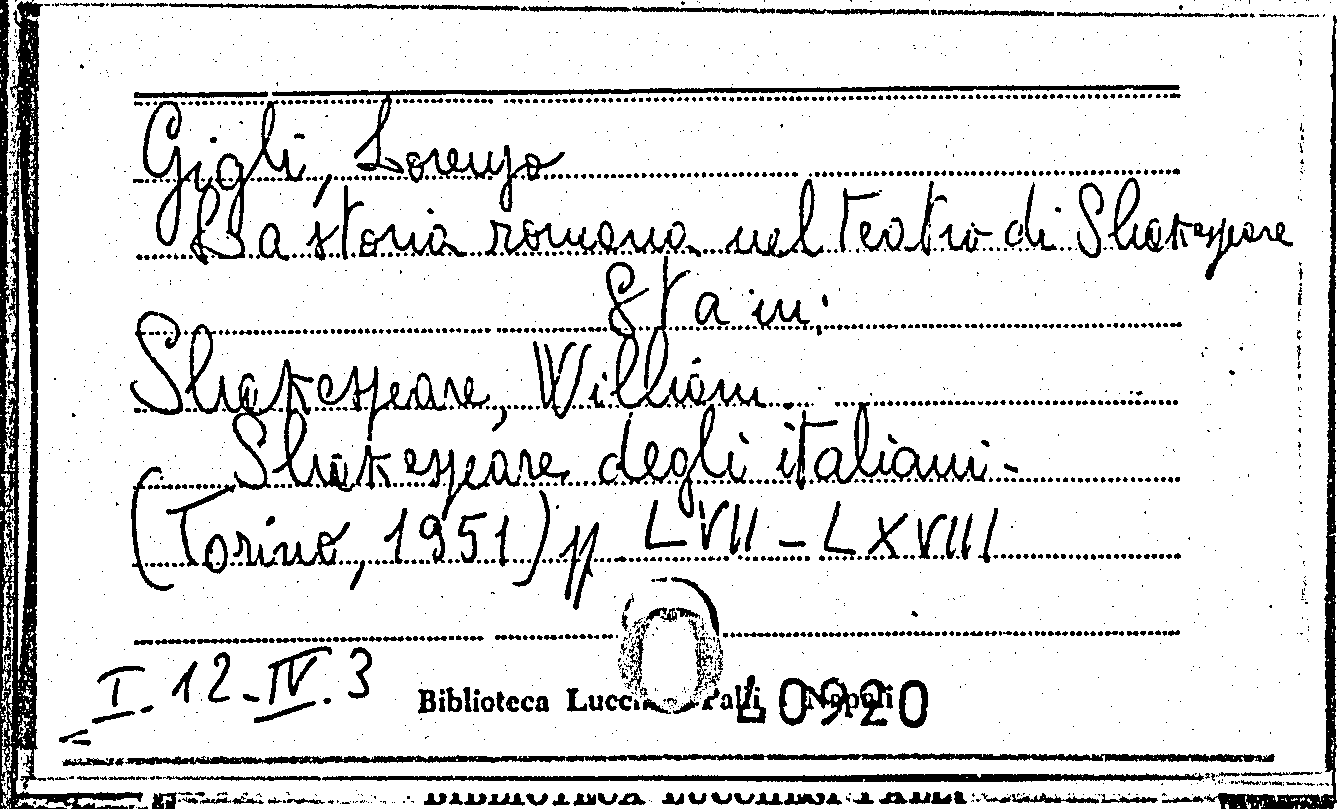 Gigli, Lorenzo
La storia romana nel Teatro di Shakespeare
Sta in:
Shakespeare, William.
Shakespeare degli italiani-
(Torino, 1951) pp LVII - LXVIII
I. 12-IV. 3
Biblioteca Palli Napoli
40920
BIBLIOTECA LUCCHESI PALLI